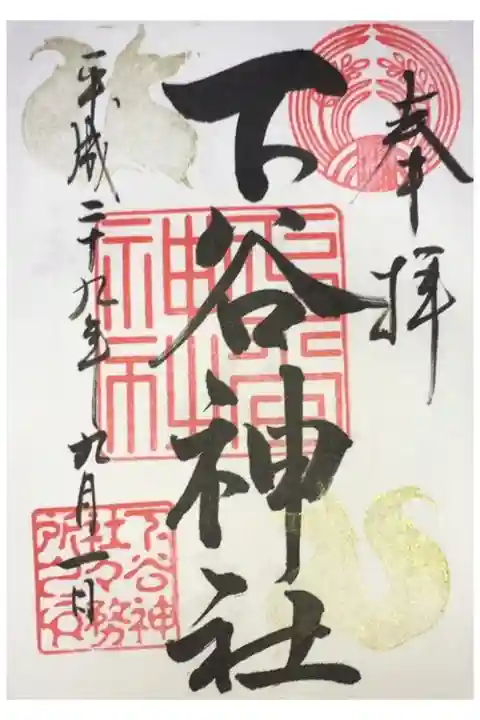 奉拝
下谷神社
平成二十九年九月一日
下谷神
社之務
所之印